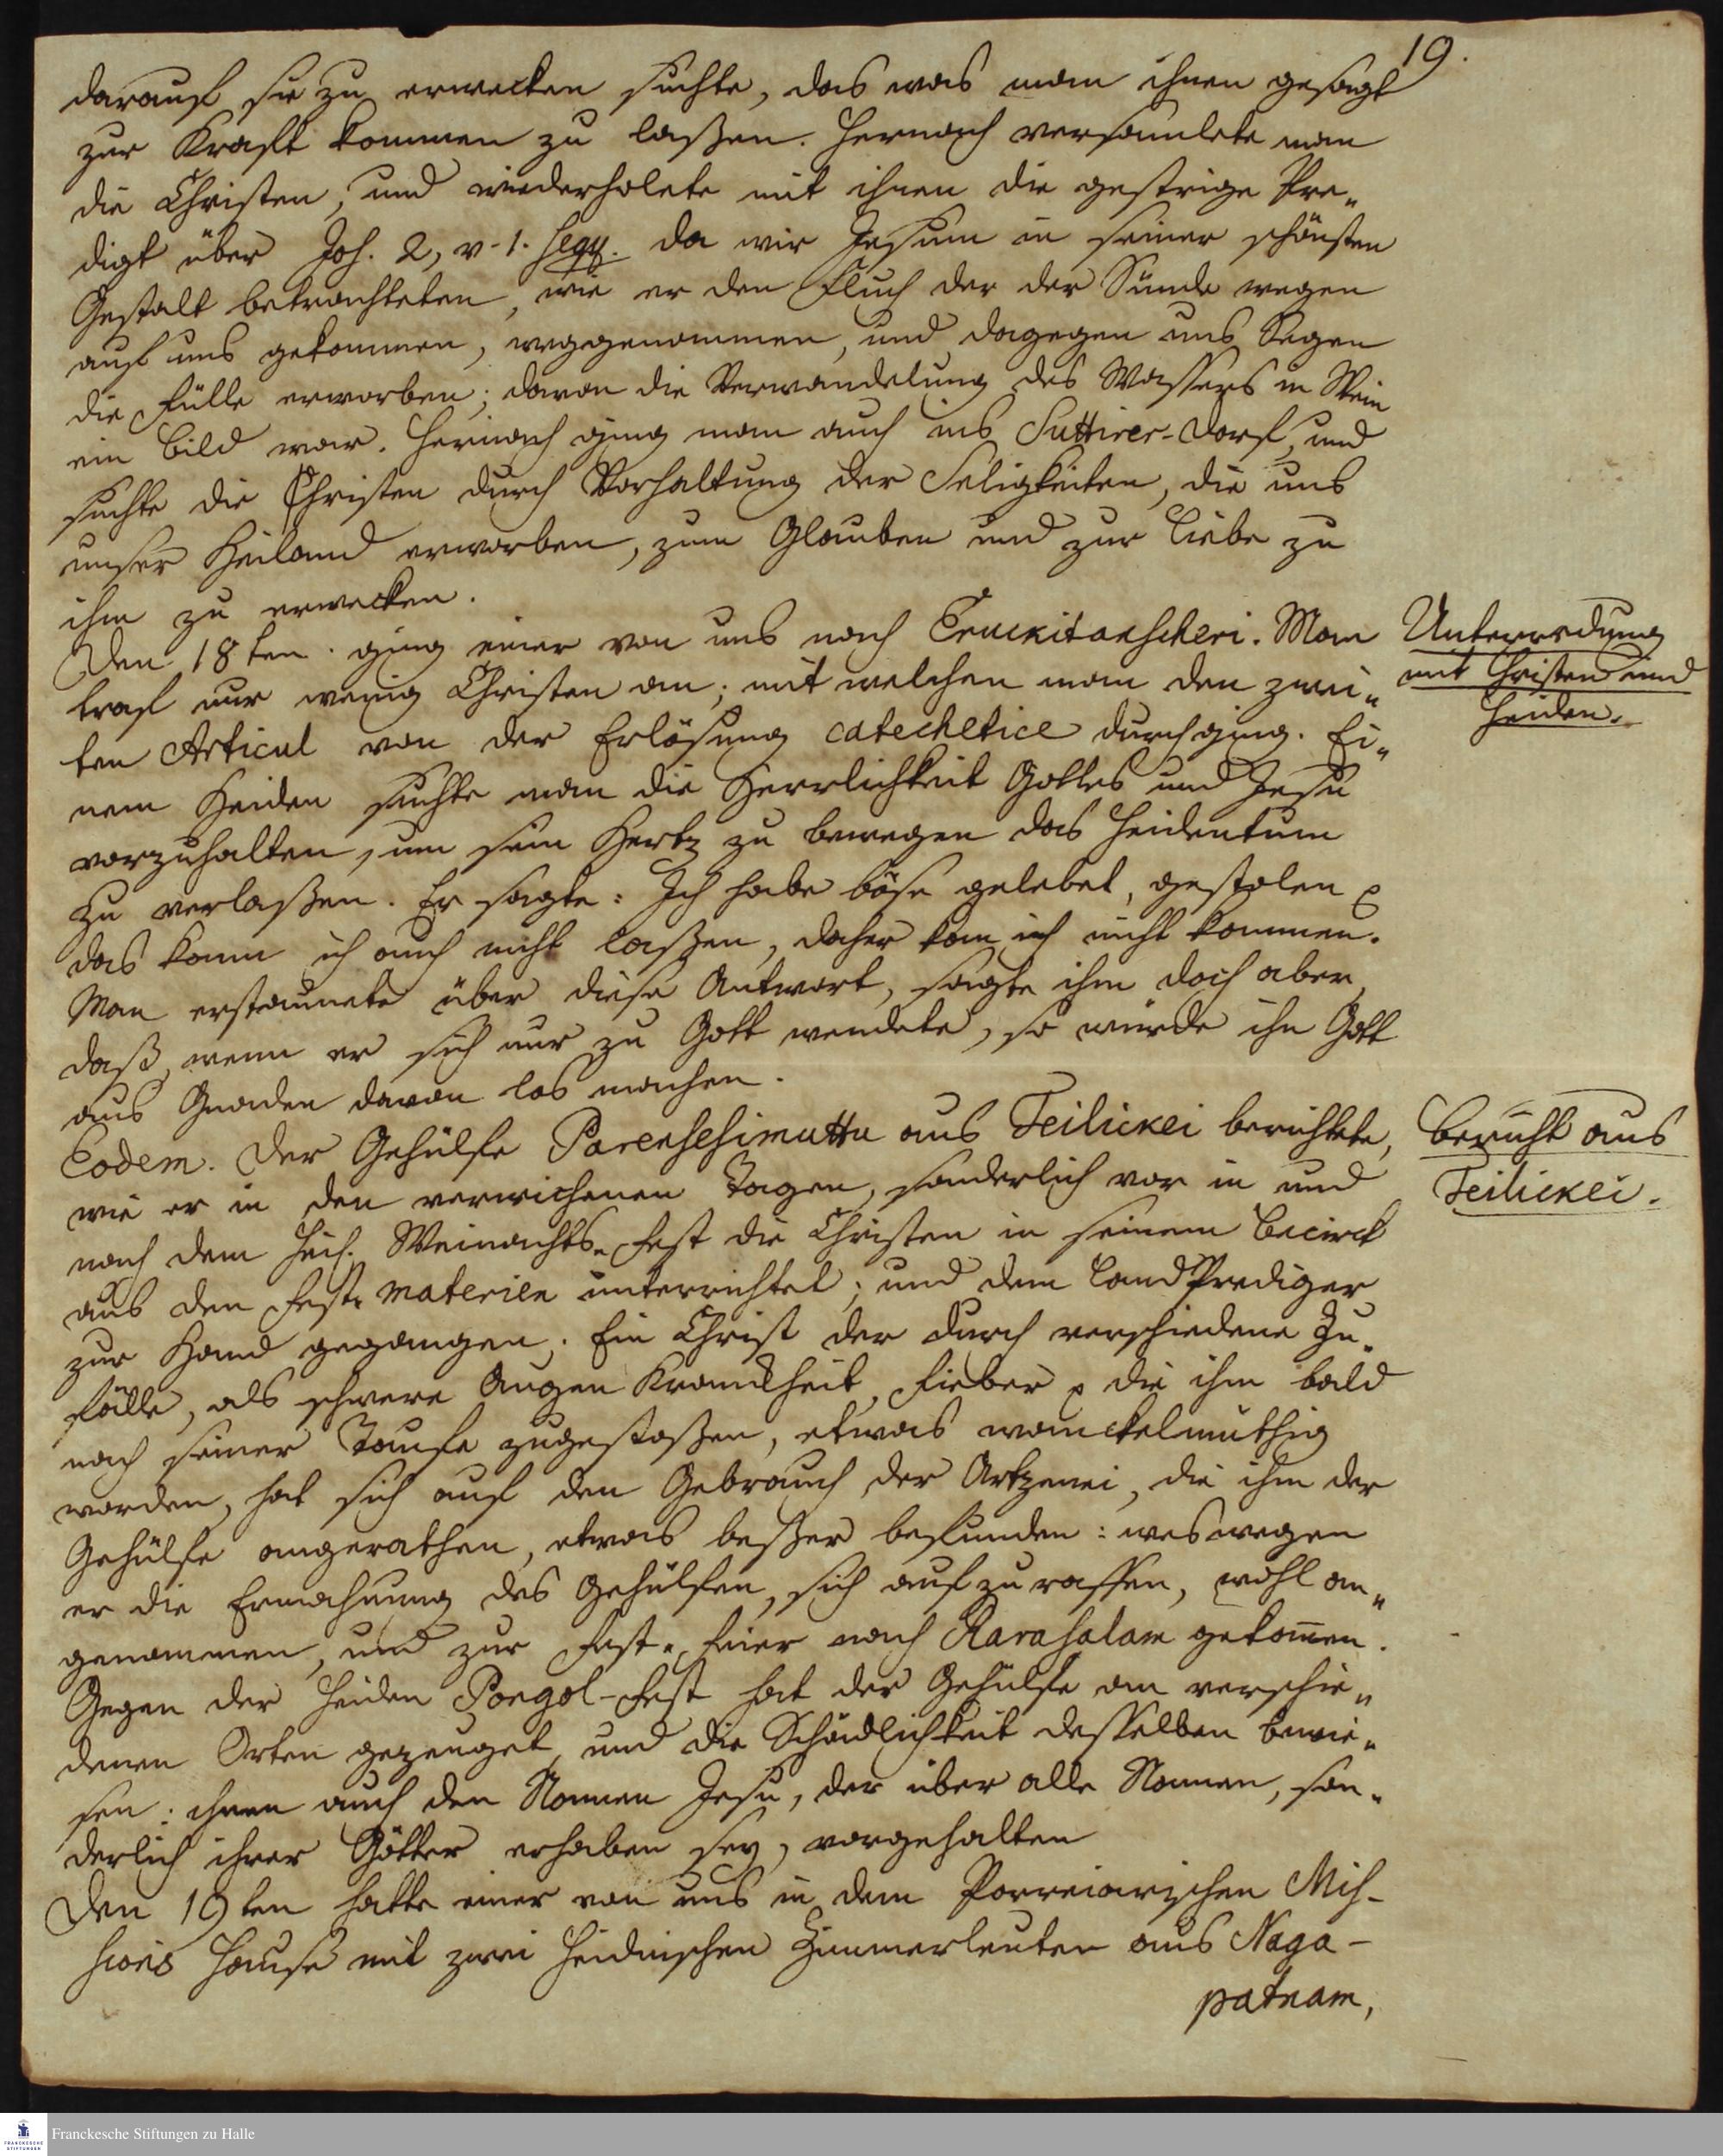 19.
darauf sie zu erwecken suchte, das was man ihnen gesagt
zur Kraft kommen zu laßen. Hernach versamlete man
die Christen, und wiederholete mit ihnen die gestrige Pre„
digt über Joh. 2, v. 1. seqq. da wir Jesum in seiner schönsten
Gestalt betrachteten, wie er den Fluch der der Sünde wegen
auf uns gekommen, weggenommen, und dagegen uns Segen
die Fülle erworben; davon die Verwandelung des Wassers in Wein
ein Bild war. Hernach ging man auch ins Suttirer-Dorf, und
suchte die Christen durch Vorhaltung der Seligkeiten, die uns
unser Heiland erworben, zum Glauben und zur Liebe zu
ihm zu erwecken.
Den 18ten. ging einer von uns nach Eruckitanscheri. Man
traf nur wenig Christen an; mit welchen man den zwei„
ten Articul von der Erlösung catechetice durchging. Ei„
nem Heiden suchte man die Herrlichkeit Gottes und Jesu
vorzuhalten, um sein Hertz zu bewegen das Heidentum
zu verlaßen. Er sagte: Ich habe böse gelebet, gestolen ꝛc
das kann ich auch nicht laßen, daher kan ich nicht kommen.
Man erstaunete über diese Antwort, sagte ihm doch aber,
daß, wenn er sich nur zu Gott wendete, so würde ihn Gott
aus Gnaden davon los machen.
Eodem. Der Gehülfe Parenschimuttu aus Teilickei berichtete,
wie er in den verwichenen Tagen, sonderlich vor in und
nach dem heil. Weinachts„Fest die Christen in seinem Becirck
aus den Fest„materien unterrichtet; und dem LandPrediger
zur Hand gegangen. Ein Christ der durch verschiedene Zu„
fälle, als schwere Augen Kranckheit, Fieber ꝛc die ihm bald
nach seiner Taufe zugestoßen, etwas wanckelmüthig
worden, hat sich auf den Gebrauch der Artzenei, die ihm der
Gehülfe angerathen, etwas beßer befunden: weswegen
er die Ermahnung des Gehülfen, sich aufzuraffen, wohl an„
genommen, und zur Fest„Feier nach Karasalam gekom̄en.
Gegen der Heiden Pongol-Fest hat der Gehülfe an verschie„
denen Orten gezeuget, und die Schädlichkeit desselben bewie„
sen; ihnen auch den Namen Jesu, der über alle Namen, son„
derlich ihrer Götter erhaben sey, vorgehalten
Den 19ten hatte einer von uns in dem Porreiarischen Mis-
sions Hause mit zwei heidnischen Zimmerleuten aus Naga-
patnam,
Unterredung
mit Christen und
Heiden.
Bericht aus
Teilickei.
Franckesche Stiftungen zu Halle